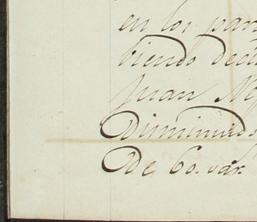 en los par
biendo decl
Juan N
Disminuido
De 60. var.